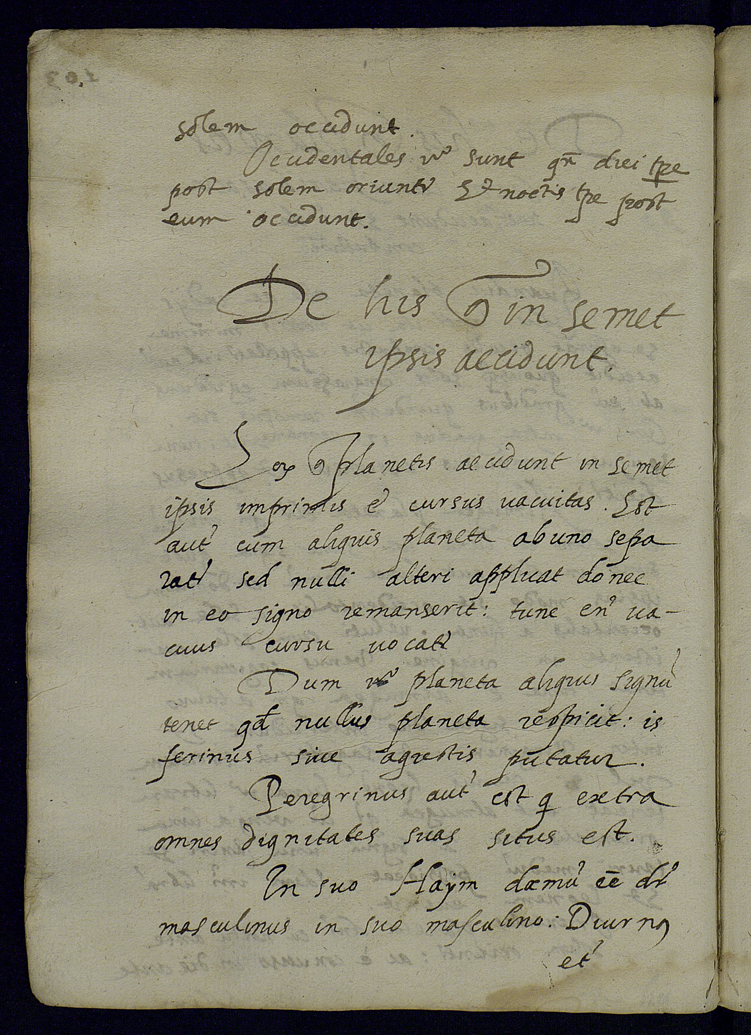 solem occidunt.
Occidentales vo sunt qn diei tpe
post solem oriunt Et noctis tpe post
eum occidunt.
De his q in semet
ipsis accidunt.
Eoꝝ q planetis accidunt in semet
ipsis imprimis ē cursus vacuitas. Est
aut cum aliquis planeta ab uno sepa
rat sed nulli alteri applicat donec
in eo signo remanserit: tunc en va-
cuus cursu vocat
Dum vo planeta aliquis signū
tenet qd nullus planeta respicit: is
ferinus sive agrestis putatur.
Peregrinus aut est q extra
omnes dignitates suas situs est.
In suo Haym dæmū ēē dr
masculinus in suo masculino: Diurnꝰ
et